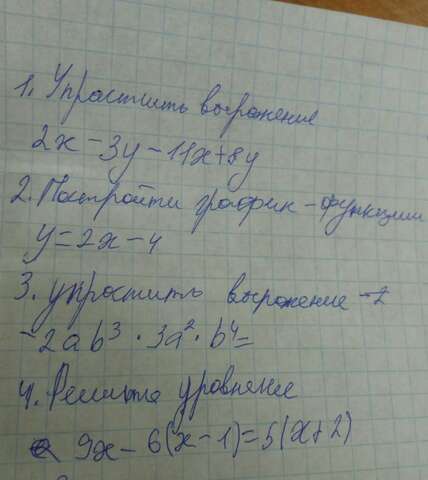 1. Упростить выражение
2x - 3y - 11x + 8y
2. Построить график - функции
y = 2x - 4
3. упростить выражение
-2ab³ · 3a² · b⁴ =
4. Решите уравнение
9x - 6(x - 1) = 5(x + 2)